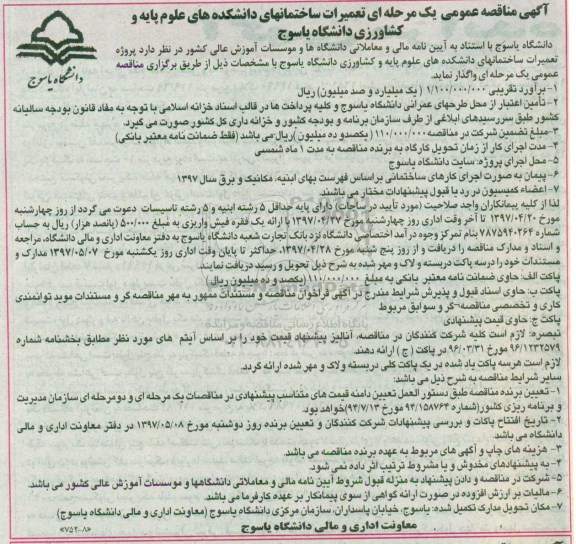 آگهی مناقصه عمومی یک مرحله ای تعمیرات ساختمانهای دانشکده های علوم پایه و
کشاورزی دانشگاه یاسوج
دانشگاه یاسوج
دانشگاه یاسوج با استناد به آیین نامه مالی و معاملاتی دانشگاه ها و موسسات آموزش عالی کشور در نظر دارد پروژه
تعمیرات ساختمانهای دانشکده های علوم پایه و کشاورزی دانشگاه یاسوج با مشخصات ذیل از طریق برگزاری مناقصه
عمومی یک مرحله ای واگذار نماید.
۱- برآورد تقریبی ۱/۱۰۰/۰۰۰/۰۰۰ (یک میلیارد و صد میلیون) ریال
۲- تأمین اعتبار از محل طرحهای عمرانی دانشگاه یاسوج و کلیه پرداخت ها در قالب اسناد خزانه اسلامی با توجه به مفاد قانون بودجه سالیانه
کشور طبق سررسیدهای ابلاغی از طرف سازمان برنامه و بودجه کشور و خزانه داری کل کشور صورت می گیرد.
۳- مبلغ تضمین شرکت در مناقصه ۱۱۰/۰۰۰/۰۰۰ (یکصدو ده میلیون) ریال می باشد (فقط ضمانت نامه معتبر بانکی)
۴- مدت اجرای کار از زمان تحویل کارگاه به برنده مناقصه به مدت ۱ ماه شمسی
۵- محل اجرای پروژه: سایت دانشگاه یاسوج
۶- پیمان به صورت اجرای کارهای ساختمانی براساس فهرست بهای ابنیه، مکانیک و برق سال ۱۳۹۷
۷- اعضاء کمیسیون در رد یا قبول پیشنهادات مختار می باشند.
لذا از کلیه پیمانکاران واجد صلاحیت (مورد تأیید در ساجات) دارای پایه حداقل ۵ رشته ابنیه و ۵ رشته تاسیسات دعوت می گردد از روز چهارشنبه
مورخ ۱۳۹۷/۰۴/۲۰ تا آخر وقت اداری روز چهارشنبه مورخ ۱۳۹۷/۰۴/۲۷ با ارائه یک فقره فیش واریزی به مبلغ ۵۰۰/۰۰۰ (پانصد هزار) ریال به حساب
شماره ۷۸۷۵۹۴۰۲۶۴ بنام تمرکز وجوه درآمد اختصاصی دانشگاه نزد بانک تجارت شعبه دانشگاه یاسوج به دفتر معاونت اداری و مالی دانشگاه، مراجعه
و اسناد و مدارک مناقصه را دریافت و از روز پنج شنبه مورخ ۱۳۹۷/۰۴/۲۸ حداکثر تا پایان وقت اداری روز یکشنبه مورخ ۱۳۹۷/۰۵/۰۷ مدارک و
مستندات خود را درسه پاکت دربسته و لاک و مهر شده به شرح ذیل تحویل و رسید دریافت نمایند.
پاکت الف: حاوی ضمانت نامه معتبر بانکی به مبلغ ۱۱۰/۰۰۰/۰۰۰ (یکصد و ده میلیون ریال)
پاکت ب: حاوی اسناد قبول و پذیرش شرایط مندرج در آگهی فراخوان مناقصه و مستندات ممهور به مهر مناقصه گر و مستندات موید توانمندی
کاری و تخصصی مناقصه گر و سوابق مربوط
پاکت ج: حاوی قیمت پیشنهادی
تبصره: لازم است کلیه شرکت کنندگان در مناقصه، آنالیز پیشنهاد قیمت خود را بر اساس آیتم های مورد نظر مطابق بخشنامه شماره
۹۶/۱۲۳۲۵۷۹ مورخ ۹۶/۰۳/۳۱ در پاکت (ج) ارائه دهند.
لازم است هرسه پاکت یاد شده در یک پاکت کلی دربسته ولاک و مهر شده ارائه گردد.
سایر شرایط مناقصه به شرح ذیل می باشد:
۱- تعیین برنده مناقصه طبق دستور العمل تعیین دامنه قیمت های متناسب پیشنهادی در مناقصات یک مرحله ای و دومرحله ای سازمان مدیریت
و برنامه ریزی کشور(شماره ۹۴/۱۵۸۷۶۴ مورخ ۹۴/۷/۱۳)خواهد بود.
۲- تاریخ افتتاح پاکات و بررسی پیشنهادات شرکت کنندگان و تعیین برنده روز دوشنبه مورخ ۱۳۹۷/۰۵/۰۸ در دفتر معاونت اداری و مالی
دانشگاه می باشد.
۳- هزینه های چاپ و آگهی های مربوط به عهده برنده مناقصه می باشد.
۴- به پیشنهادهای مخدوش و یا مشروط ترتیب اثر داده نمی شود.
۵- شرکت در مناقصه و دادن پیشنهاد به منزله قبول شروط آیین نامه مالی و معاملاتی دانشگاهها و موسسات آموزش عالی کشور می باشد.
۶- مالیات بر ارزش افزوده در صورت ارائه گواهی از سوی پیمانکار بر عهده کارفرما می باشد.
۷- مکان تحویل مدارک تکمیل شده: یاسوج، خیابان پاسداران، سازمان مرکزی دانشگاه یاسوج (معاونت اداری و مالی دانشگاه یاسوج)
معاونت اداری و مالی دانشگاه یاسوج